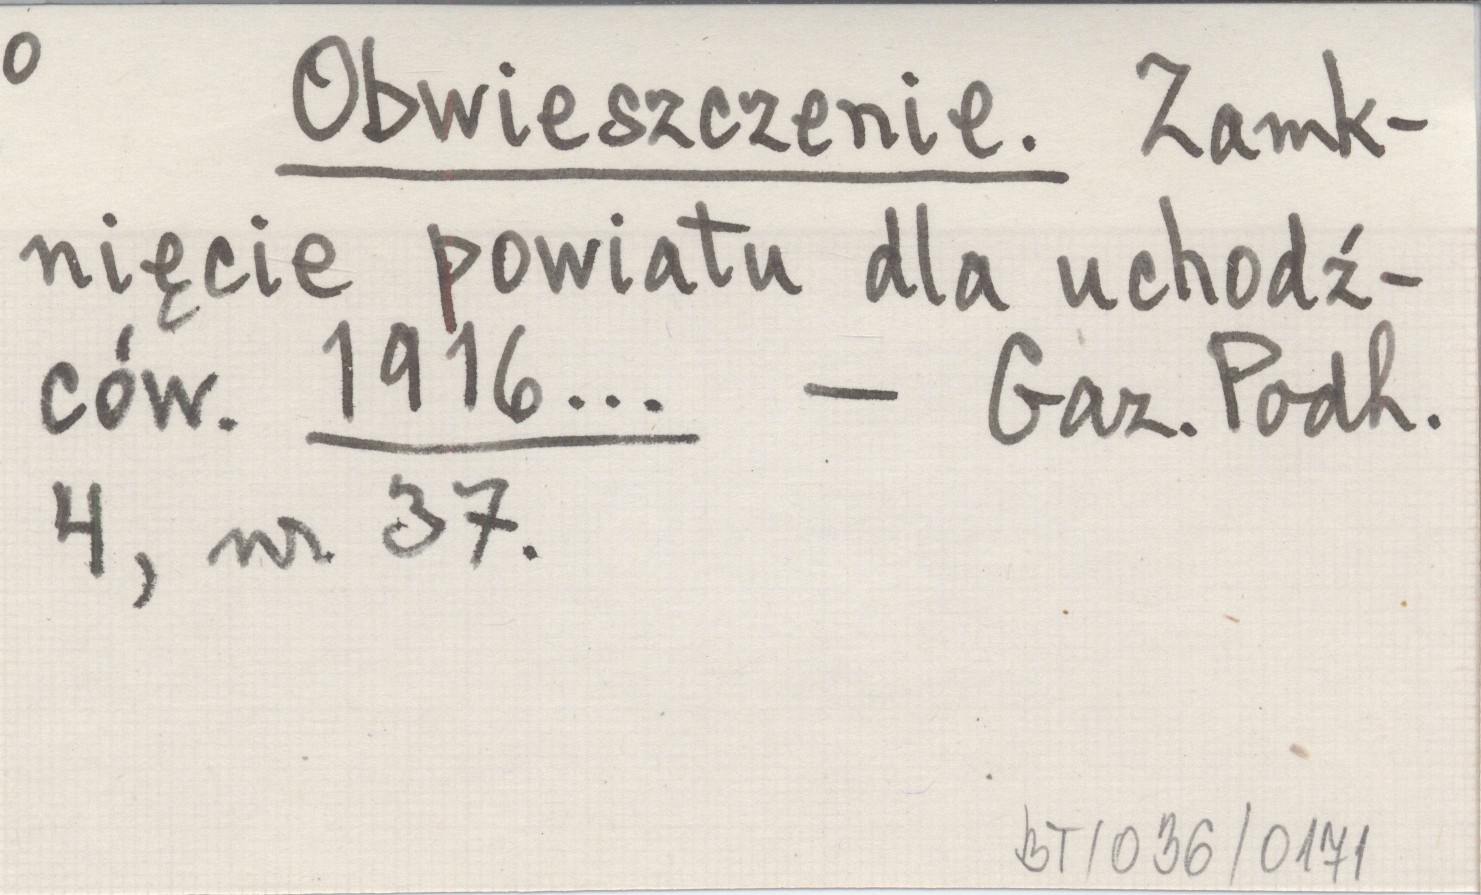 o
Obwieszczenie. Zamk-
nięcie powiatu dla uchodź-
ców. 1916... — Gaz. Podh.
4, nr 37.
BT/036/0171